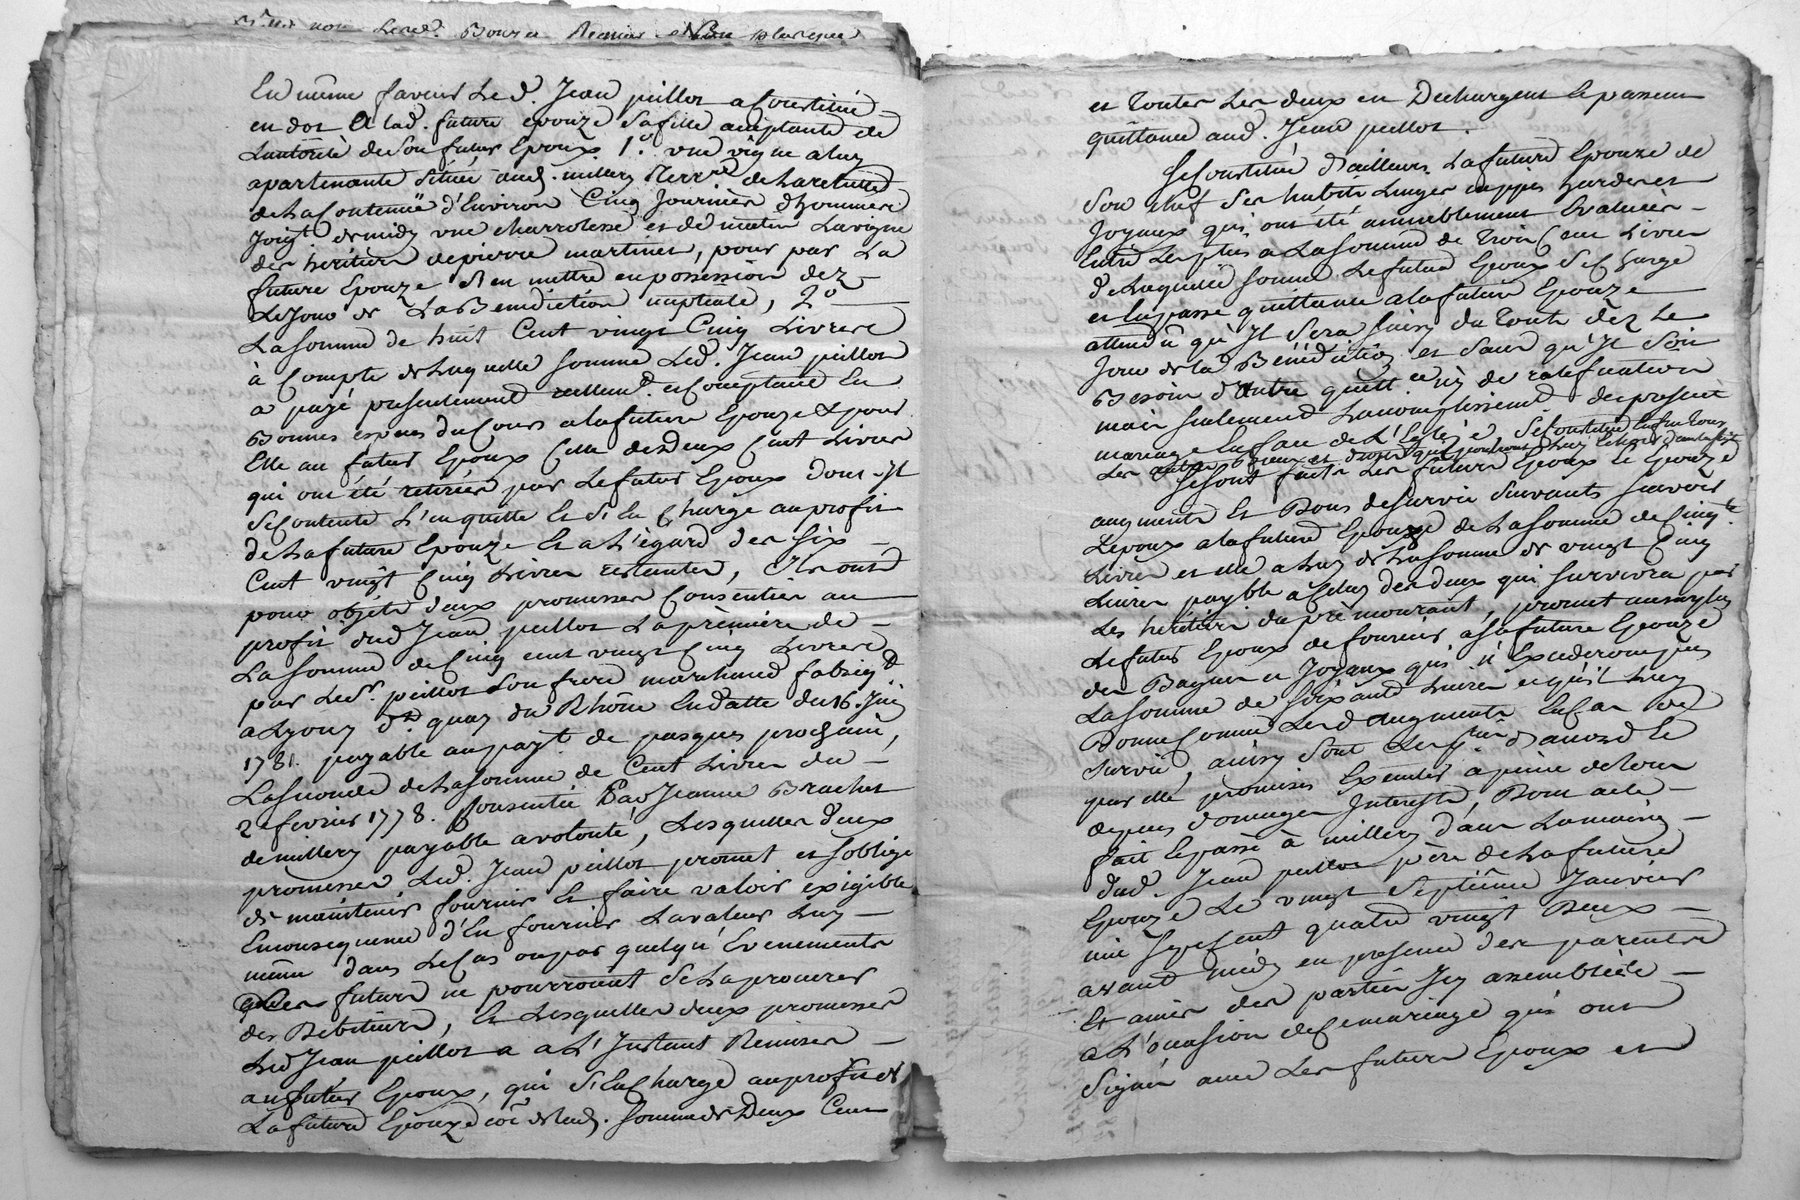 En même faveur led. Jean peillot a Constitué
en dot A lad. future epouze Sa fille acceptante de
Lautorité de Son futur Epoux 1.° une vigne a luy
apartenante Située aud. millery
de la Contenüe d'Environ Cinq Journées d'hommes
Joigt. de midy une charrolesse et de matin La vigne
des heritiers de pierre martinet, pour par La
future Epouze S'en mettre en possession dez
Le Jour de La Benediction nuptiale, 2.°
La Somme de huit Cent vingt Cinq Livres
à Compte de Laquelle Somme Led. Jean peillot
a payé presentement reellemt. et Comptant En
Bonnes especes du Cours a la future Epouze & pour
Elle au futur Epoux Celle de Deux Cent Livres
qui ont été retirées par Le futur Epoux dont Jl
Se Contente L'en quitte Et S'en Charge au profit
de La future Epouze Et a L'égard des Six
Cent vingt Cinq Livres restantes, Elles ont
pour objets deux promesses Consenties au
profit dud Jean peillot La première de
La Somme de Cinq cent vingt Cinq Livres
par Le Sr. peillot Son frere marchand fabriqt
a Lyon quay du Rhône En datte du 16. Juin
1781. payable au payt. de pasques prochain,
La Seconde de La Somme de Cent Livres du
2e fevrier 1778. Consentie Par Jeanne Brachet
de millery payable a volonté, Lesquelles deux
promesses Led. Jean peillot promet et S'oblige
de maintenir fournir Et faire valoir exigible
En consequence d'En fournir La valeur Luy
même dans Le Cas ou par quelqu'Evenements
Les futurs ne pourroient Se La procurer
des Debiteurs, Et Lesquelles deux promesses
Led Jean peillot a a L'Instant Remises
au futur Epoux, qui S'en Charge au profit de
La future Epouze coe de lad. Somme de Deux Cent
et toutes Les deux en Dechargent Et passent
quittance aud. Jean peillot.
Se Constitue d'ailleurs La future Epouze de
Son chef Ses habits Linges nippes hardes et
Joyaux qui ont été amiablement Evaluees
Entre Les pties a La Somme de Trois Cent Livres
de Laquelle Somme Le futur Epoux Se Charge
et En passe quittance a la future Epouze
attendu qu'Jl Sera Saisy du Tout dez Le
Jour de la Bénédiction et Sans qu'Jl Soit
Besoin d'Autre quittce ny de ratification
mais Seulement L'accomplissement du present
mariage En face de L'Eglise Se Constitue Enfin Tous
Les autres Biens et droits qui pourront Luy Echoir dans la Suite
Se Sont faits Les futurs Epoux Et Epouze
augments Et Dons de Survie Suivants Savoir
L'epoux a la future Epouze de La Somme de Cinqte
Livres et elle a Luy de La Somme de vingt Cinq
Livres payble a Celuy des deux qui Survivra par
Les heritiers du prémourant, promet aussy
Le futur Epoux de fournir a Sa future Epouze
des Bagues et Joyaux qui n'Excederont pas
La Somme de Soixante Livres et qu'il Luy
Donne Comme Lesd augments En Cas de
Survie, ainsy Sont Les pties d'accord Et
par elle promises Executer a peine de tous
depens domages Interests, Dont acte
fait Et passé à millery dans La maison
dud. Jean peillot père de La future
Epouze Le vingt Septième Janvier
mil Sept Cent quatre vingt Deux
avant midy en presence des parents
Et amis des parties Jcy assemblées
a L'occasion de Ce mariage qui ont
Signés avec Les futurs Epoux et